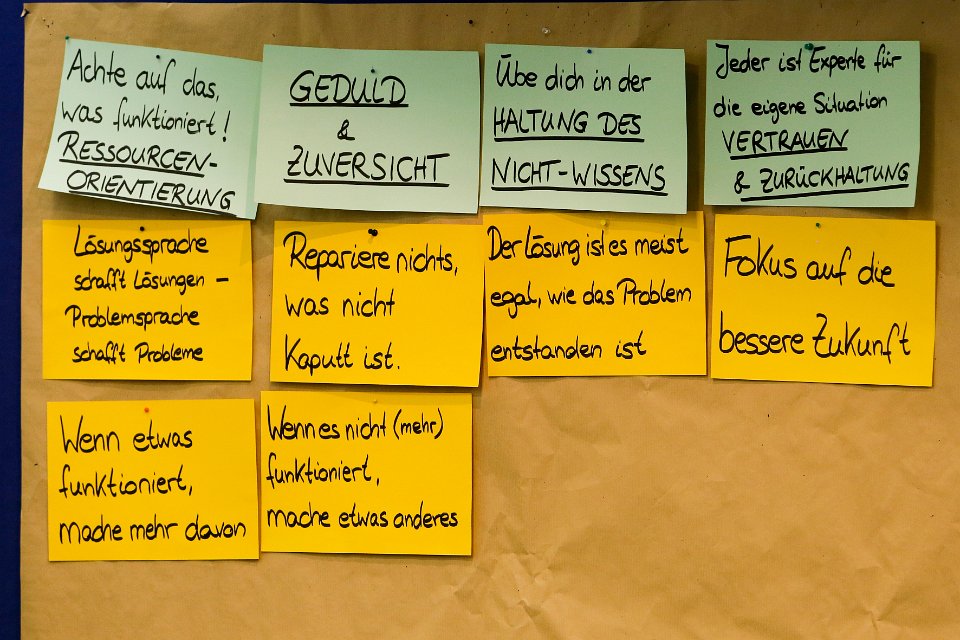 Achte auf das,
was funktioniert!
RESSOURCEN-
ORIENTIERUNG
GEDULD
&
ZUVERSICHT
Übe dich in der
HALTUNG DES
NICHT-WISSENS
Jeder ist Experte für
die eigene Situation
VERTRAUEN
& ZURÜCKHALTUNG
Lösungssprache
schafft Lösungen –
Problemsprache
schafft Probleme
Repariere nichts,
was nicht
kaputt ist.
Der Lösung ist es meist
egal, wie das Problem
entstanden ist
Fokus auf die
bessere Zukunft
Wenn etwas
funktioniert,
mache mehr davon
Wenn es nicht (mehr)
funktioniert,
mache etwas anderes